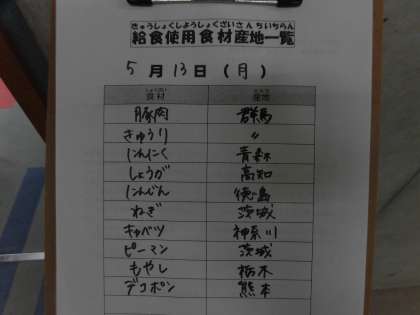 きゅうしょくしようしょくざいさんちいちらん
給食使用食材産地一覧
5月13日(月)
食材 産地
豚肉 群馬
きゅうり 〃
にんにく 青森
しょうが 高知
にんじん 徳島
ねぎ 茨城
キャベツ 神奈川
ピーマン 茨城
もやし 栃木
デコポン 熊本